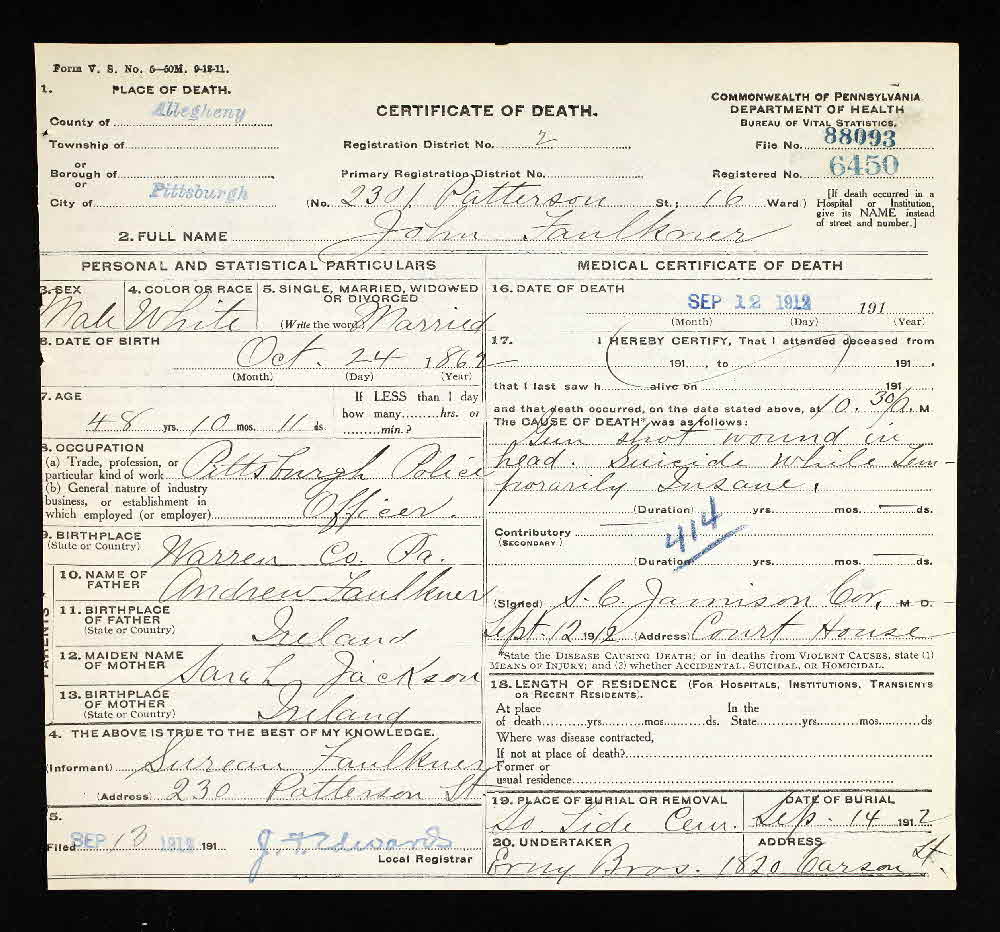 Form V. S. No. 5—50M. 9-12-11.
1. PLACE OF DEATH.
County of Allegheny
Township of
or
Borough of
or
City of Pittsburgh
CERTIFICATE OF DEATH.
Registration District No. 2
Primary Registration District No.
(No. 2301 Patterson St; 16 Ward)
COMMONWEALTH OF PENNSYLVANIA
DEPARTMENT OF HEALTH
BUREAU OF VITAL STATISTICS.
File No. 88093
Registered No. 6450
[If death occurred in a
Hospital or Institution,
give its NAME instead
of street and number.]
2. FULL NAME John Faulkner
PERSONAL AND STATISTICAL PARTICULARS
3. SEX
Male
4. COLOR OR RACE
White
5. SINGLE, MARRIED, WIDOWED
OR DIVORCED
(Write the word) Married
6. DATE OF BIRTH
Oct. 24 186
(Month) (Day) (Year)
7. AGE
48 yrs. 10 mos. 11 ds.
If LESS than 1 day
how many hrs. or
min.?
8. OCCUPATION
(a) Trade, profession, or
particular kind of work Pittsburgh Police
(b) General nature of industry
business, or establishment in
which employed (or employer) Officer.
9. BIRTHPLACE
(State or Country) Warren Co. Pa.
PARENTS
10. NAME OF
FATHER Andrew Faulkner
11. BIRTHPLACE
OF FATHER
(State or Country) Ireland
12. MAIDEN NAME
OF MOTHER Sarah Jackson
13. BIRTHPLACE
OF MOTHER
(State or Country) Ireland
4. THE ABOVE IS TRUE TO THE BEST OF MY KNOWLEDGE.
(Informant) Faulkner
(Address) 230 Patterson St
5.
Filed SEP 13 1912 191 J. F. Edwards
Local Registrar
MEDICAL CERTIFICATE OF DEATH
16. DATE OF DEATH
SEP 12 1912 191
(Month) (Day) (Year)
17. I HEREBY CERTIFY, That I attended deceased from
191 , to 191 ,
that I last saw h alive on 191
and that death occurred, on the date stated above, at 10.30 M
The CAUSE OF DEATH* was as follows:
Gun shot wound in
head. Suicide while Tem-
porarily Insane.
(Duration) yrs. mos. ds.
Contributory
(SECONDARY)
414
(Duration) yrs. mos. ds.
(Signed) S. C. Jamison Cor. M D.
Sept. 12 1912 (Address) Court House
*State the DISEASE CAUSING DEATH; or in deaths from VIOLENT CAUSES, state (1)
MEANS OF INJURY; and (2) whether ACCIDENTAL, SUICIDAL, OR HOMICIDAL.
18. LENGTH OF RESIDENCE (FOR HOSPITALS, INSTITUTIONS, TRANSIENTS
OR RECENT RESIDENTS).
At place In the
of death yrs. mos. ds. State yrs. mos. ds
Where was disease contracted,
If not at place of death?
Former or
usual residence
19. PLACE OF BURIAL OR REMOVAL
So. Side Cem.
DATE OF BURIAL
Sep. 14 1912
20. UNDERTAKER
Erny Bros.
ADDRESS
1820 Carson St.